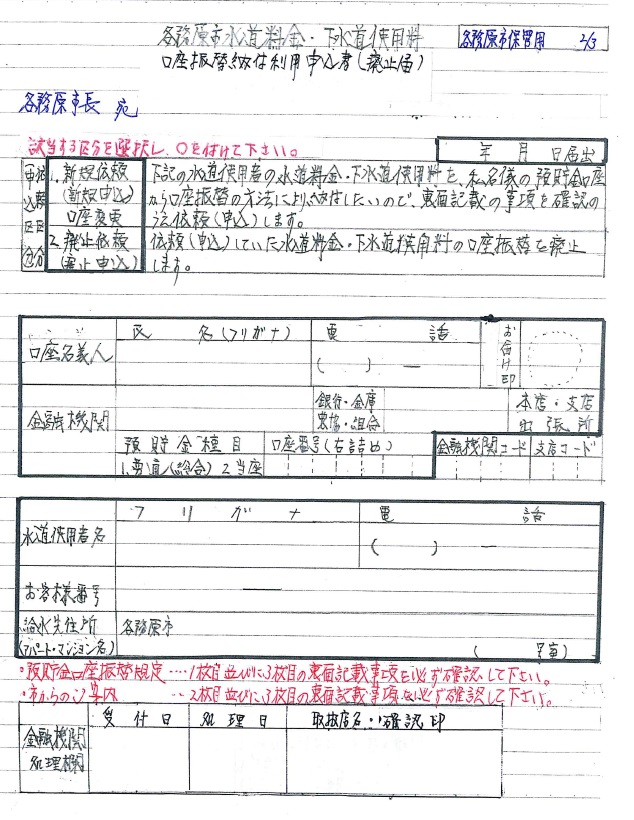 各務原市水道料金・下水道使用料
各務原市保管用 2/3
口座振替納付利用申込書(廃止届)
各務原市長 宛
該当する区分を選択し、○を付けて下さい。
年 月 日届出
申込区分
依頼区分
1.新規依頼
(新規申込)
口座変更
2.廃止依頼
(廃止申込)
下記の水道使用者の水道料金・下水道使用料を、私名儀の預貯金口座
から口座振替の方法により、納付したいので、裏面記載の事項を確認の
うえ依頼(申込)します。
依頼(申込)していた水道料金・下水道使用料の口座振替を廃止
します。
口座名義人
氏 名(フリガナ)
電 話
( ) ー
お届け印
金融機関
銀行・金庫
農協・組合
本店・支店
出張所
預貯金種目
口座番号(右詰め)
金融機関コード
支店コード
1.普通(総合) 2.当座
水道使用者名
フリガナ
電 話
( ) ー
お客様番号
ー
給水先住所
(アパート・マンション名)
各務原市
( 号車)
・預貯金口座振替規定‥‥1枚目並びに3枚目の裏面記載事項を必ず確認して下さい。
・市からのご案内 ‥2枚目並びに3枚目の裏面記載事項を必ず確認して下さい。
金融機関
処理欄
受付日
処理日
取扱店名・確認印